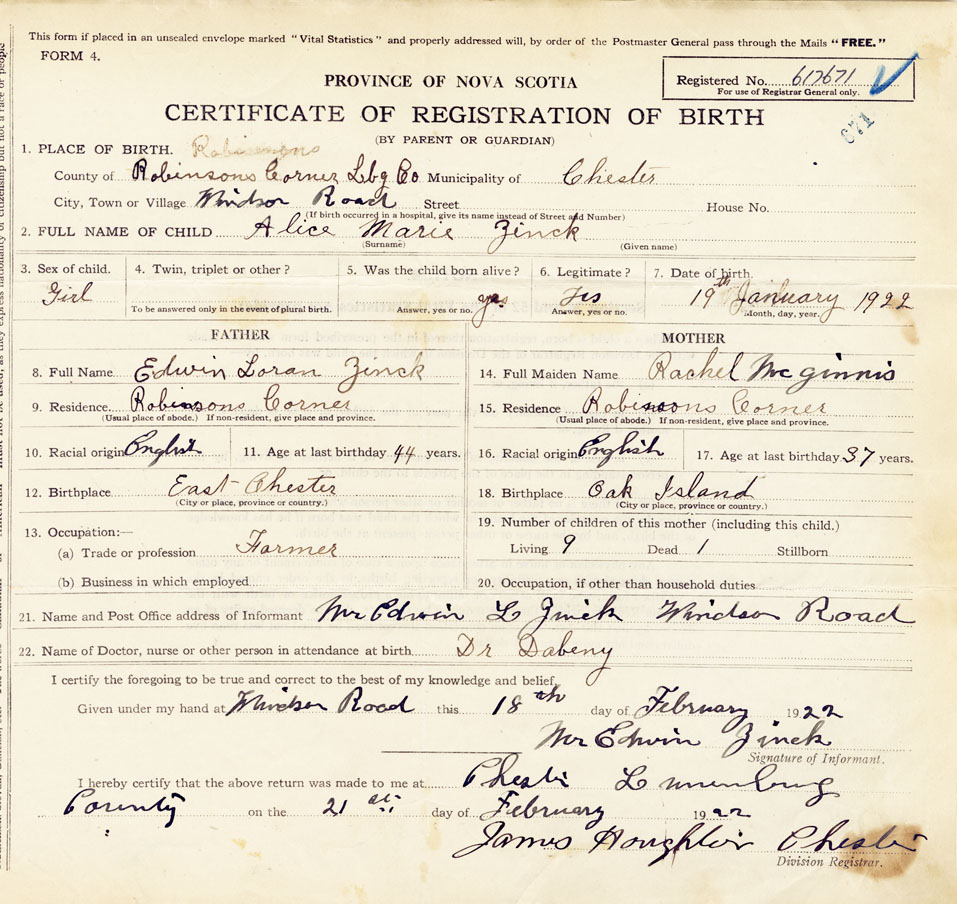 This form if placed in an unsealed envelope marked "Vital Statistics" and properly addressed will, by order of the Postmaster General pass through the Mails "FREE."
FORM 4.
PROVINCE OF NOVA SCOTIA
Registered No. 617671
For use of Registrar General only.
671
CERTIFICATE OF REGISTRATION OF BIRTH
(BY PARENT OR GUARDIAN)
1. PLACE OF BIRTH. Robinsons
County of Robinsons Corner Lbg Co Municipality of Chester
City, Town or Village Windsor Road Street House No.
(If birth occurred in a hospital, give its name instead of Street and Number)
2. FULL NAME OF CHILD Alice Marie Zinck
(Surname) (Given name)
3. Sex of child. 4. Twin, triplet or other? 5. Was the child born alive? 6. Legitimate? 7. Date of birth.
Girl yes Yes 19th January 1922
To be answered only in the event of plural birth. Answer, yes or no. Answer, yes or no. Month, day, year.
FATHER MOTHER
8. Full Name Edwin Loran Zinck 14. Full Maiden Name Rachel Mc ginnis
9. Residence Robinsons Corner 15. Residence Robinsons Corner
(Usual place of abode.) If non-resident, give place and province. (Usual place of abode.) If non-resident, give place and province.
10. Racial origin English 11. Age at last birthday 44 years. 16. Racial origin English 17. Age at last birthday 37 years.
12. Birthplace East Chester 18. Birthplace Oak Island
(City or place, province or country.) (City or place, province or country.)
13. Occupation:— 19. Number of children of this mother (including this child.)
(a) Trade or profession Farmer Living 9 Dead 1 Stillborn
(b) Business in which employed 20. Occupation, if other than household duties
21. Name and Post Office address of Informant Mr Edwin L Zinck Windsor Road
22. Name of Doctor, nurse or other person in attendance at birth Dr
I certify the foregoing to be true and correct to the best of my knowledge and belief.
Given under my hand at Windsor Road this 18th day of February 1922
Mr Edwin Zinck
Signature of Informant.
I hereby certify that the above return was made to me at Chester Lunenburg
County on the 21st day of February 1922
James Houghton Chester
Division Registrar.